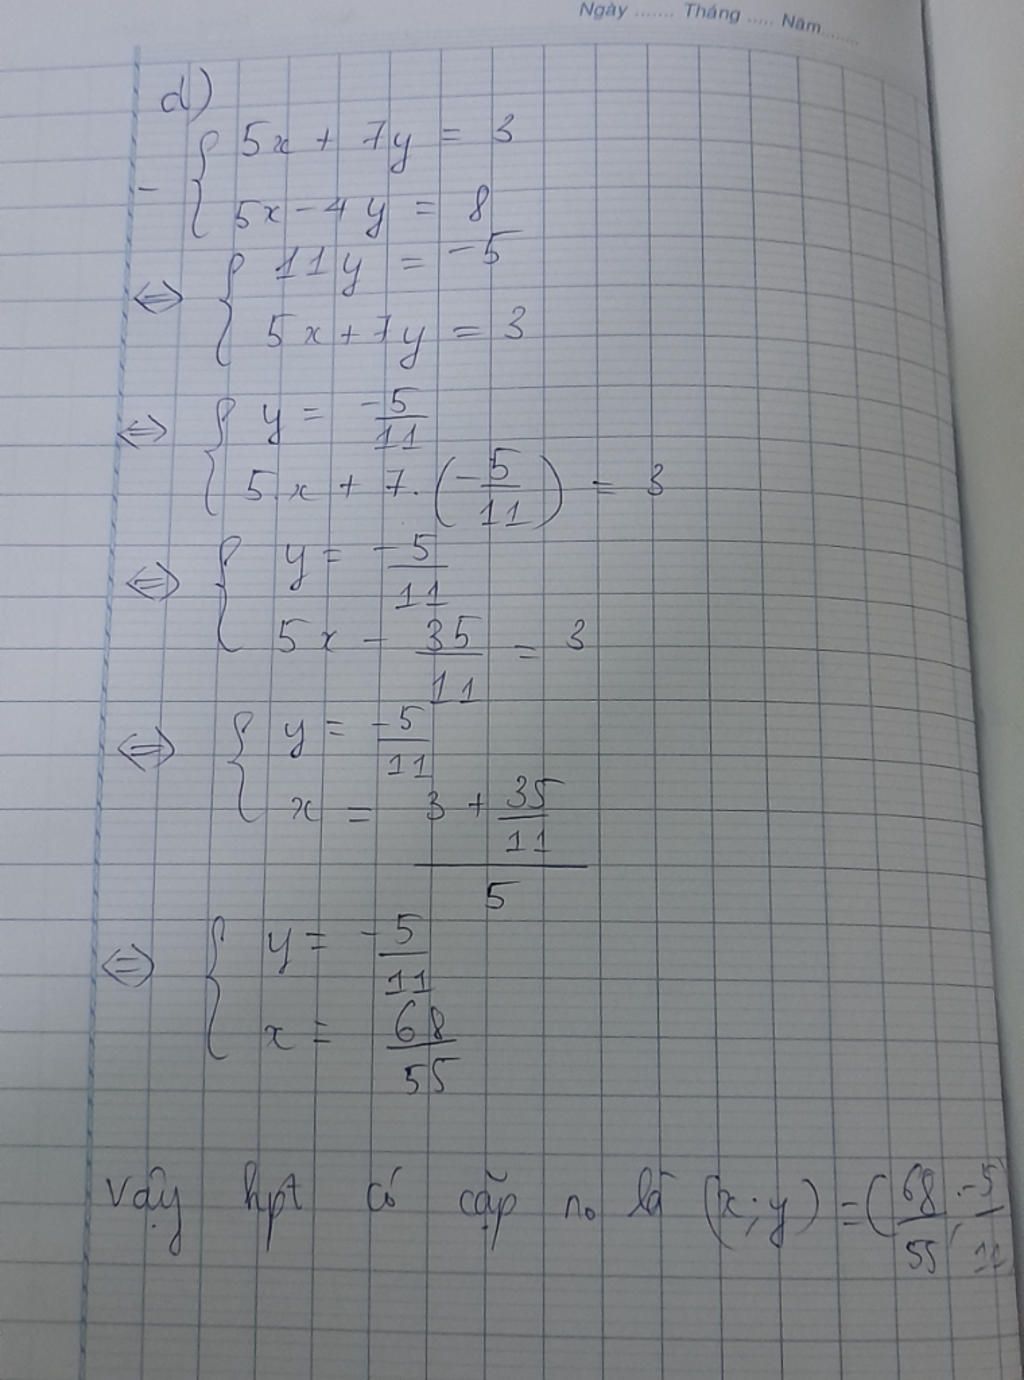 Ngày ....... Tháng ..... Năm.......
d)
- { 5x + 7y = 3
5x - 4y = 8
⇔ { 11y = -5
5x + 7y = 3
⇔ { y = -5/11
5x + 7. (-5/11) = 3
⇔ { y = -5/11
5x - 35/11 = 3
⇔ { y = -5/11
x = (3 + 35/11)/5
⇔ { y = -5/11
x = 68/55
Vậy hpt có cặp no là (x; y) = (68/55; -5/11